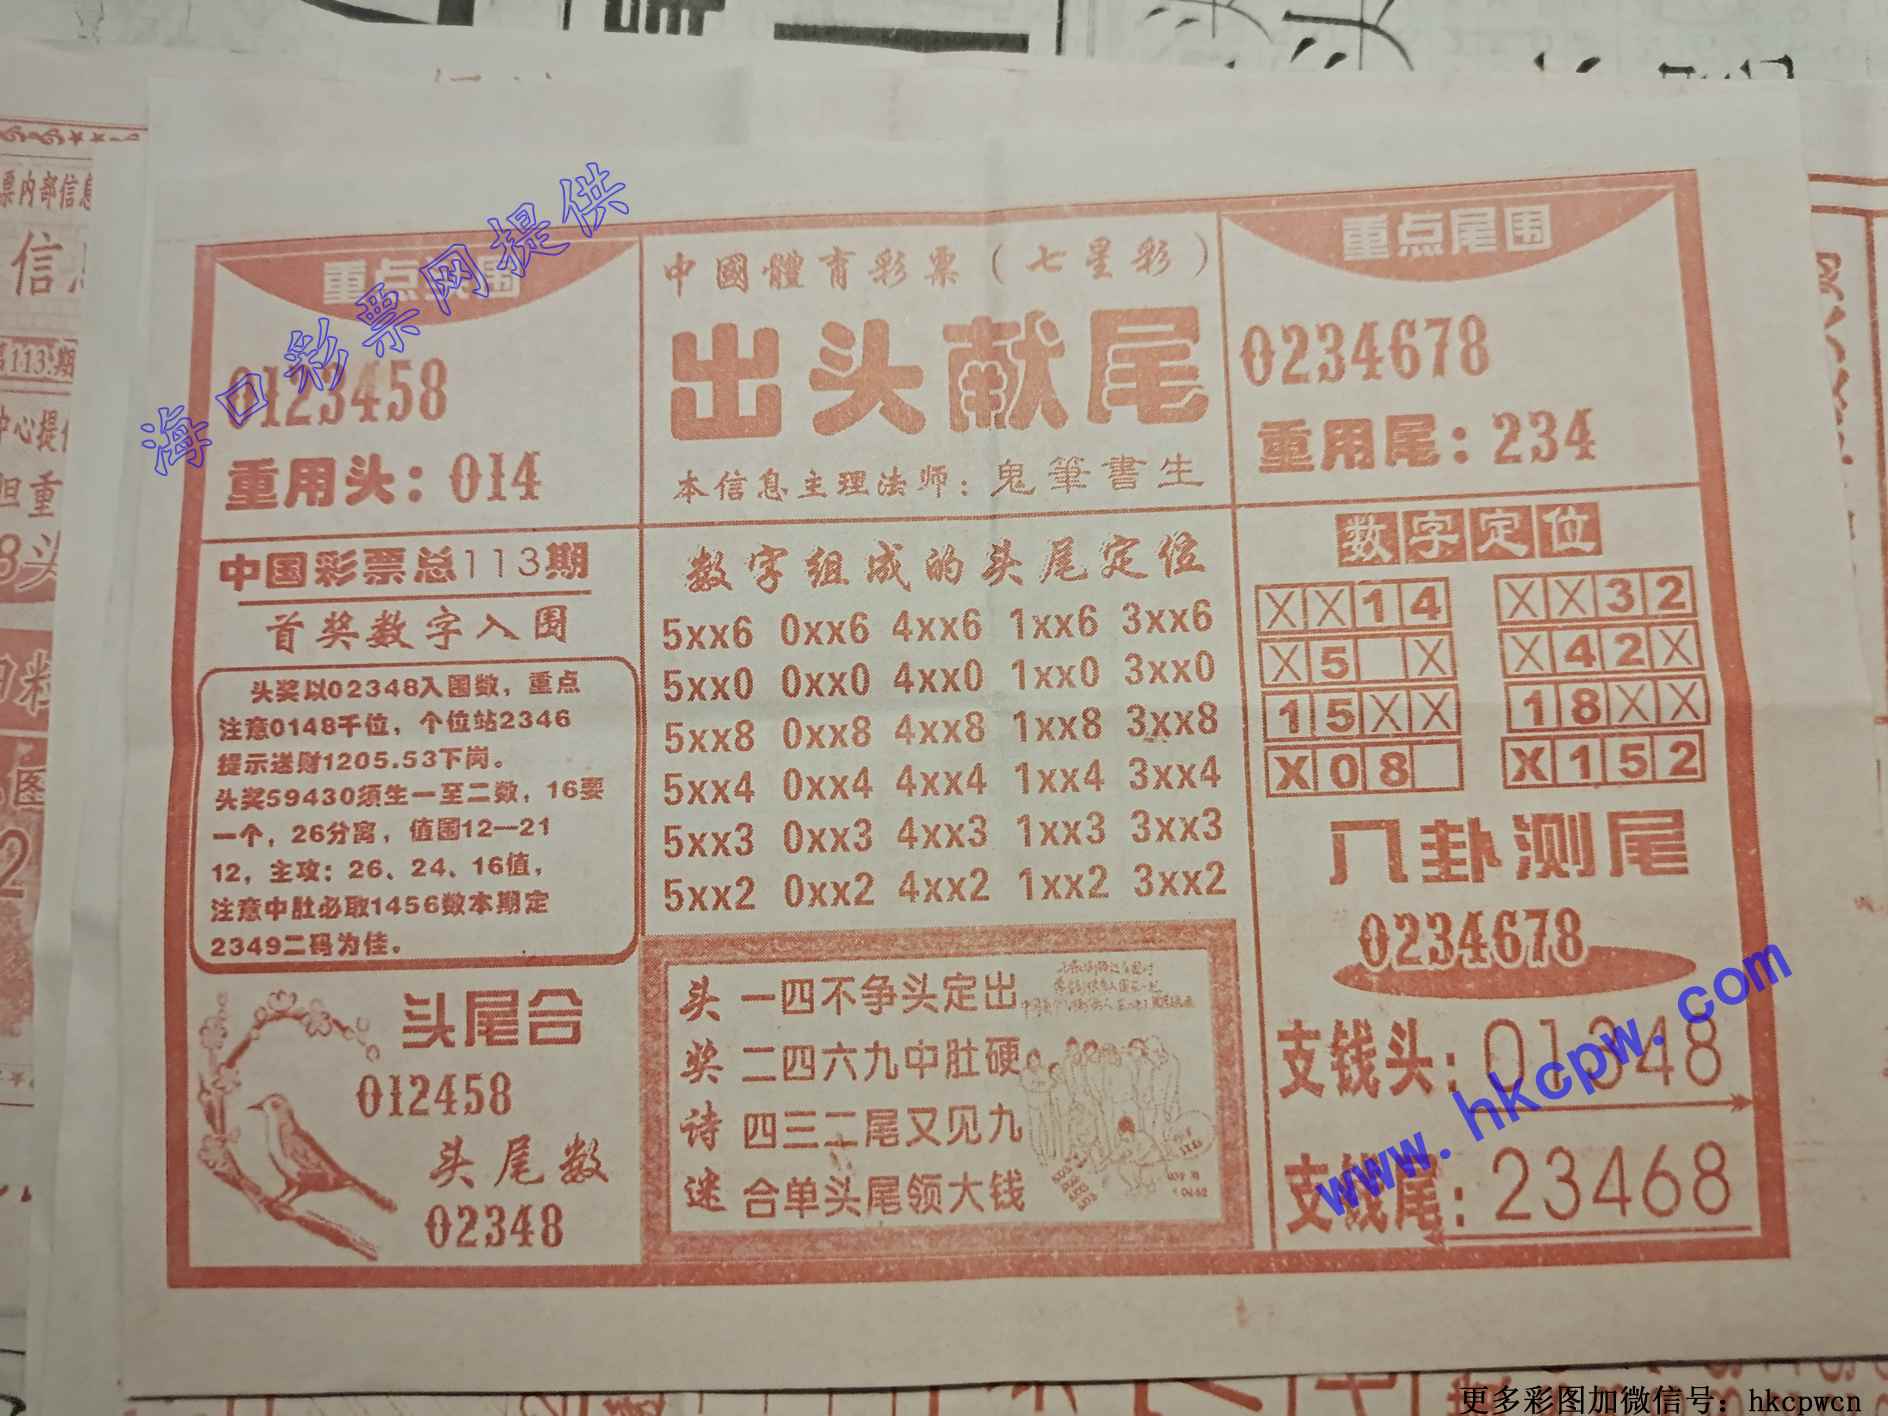 海口彩票网提供
重点头围
0123458
重用头：014
中國體育彩票（七星彩）
出头献尾
本信息主理法师：鬼筆書生
重点尾围
0234678
重用尾：234
中国彩票总113期
首奖数字入围
头奖以02348入围数，重点
注意0148千位，个位站2346
提示送财1205.53下岗。
头奖59430须生一至二数，16要
一个，26分离，值围12—21
12，主攻：26、24、16值，
注意中肚必取1456数本期定
2349二码为佳。
头尾合
012458
头尾数
02348
数字组成的头尾定位
5xx6 0xx6 4xx6 1xx6 3xx6
5xx0 0xx0 4xx0 1xx0 3xx0
5xx8 0xx8 4xx8 1xx8 3xx8
5xx4 0xx4 4xx4 1xx4 3xx4
5xx3 0xx3 4xx3 1xx3 3xx3
5xx2 0xx2 4xx2 1xx2 3xx2
头奖诗迷
一四不争头定出
二四六九中肚硬
四三二尾又见九
合单头尾领大钱
数字定位
XX14 XX32
X5 X X42X
15XX 18XX
X08 X152
八卦测尾
0234678
支钱头：01348
支钱尾：23468
www.hkcpw.com
票内部信息
信息
113期
中心提供
担重
8头
图
2
更多彩图加微信号：hkcpwcn